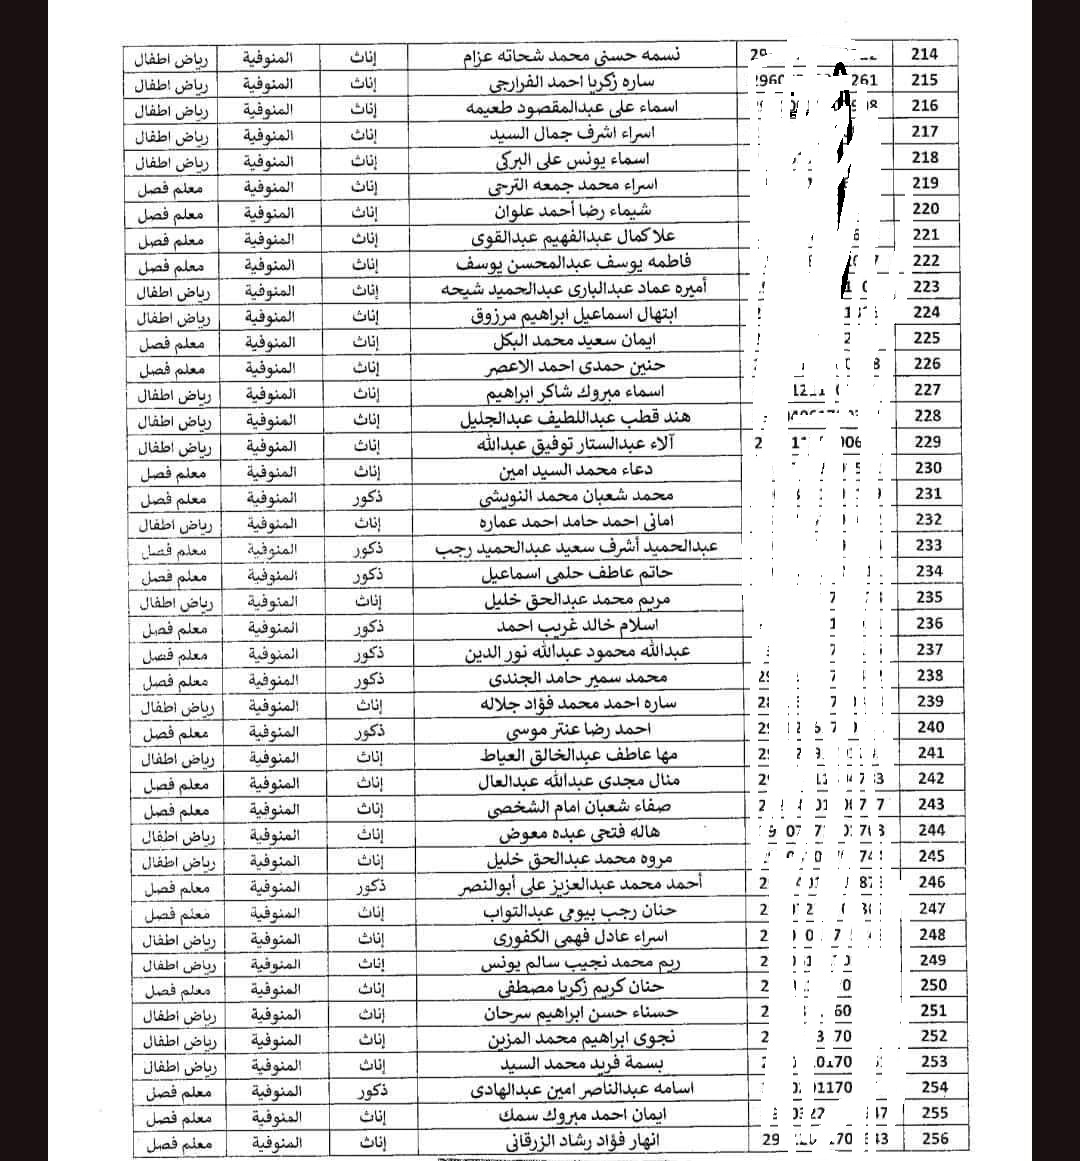 214 نسمه حسنى محمد شحاته عزام إناث المنوفية رياض اطفال
215 ساره زكريا احمد الفرارجى إناث المنوفية رياض اطفال
216 اسماء على عبدالمقصود طعيمه إناث المنوفية رياض اطفال
217 اسراء اشرف جمال السيد إناث المنوفية رياض اطفال
218 اسماء يونس على البركى إناث المنوفية رياض اطفال
219 اسراء محمد جمعه الترجى إناث المنوفية معلم فصل
220 شيماء رضا أحمد علوان إناث المنوفية معلم فصل
221 علا كمال عبدالفهيم عبدالقوى إناث المنوفية معلم فصل
222 فاطمه يوسف عبدالمحسن يوسف إناث المنوفية معلم فصل
223 أميره عماد عبدالبارى عبدالحميد شيحه إناث المنوفية رياض اطفال
224 ابتهال اسماعيل ابراهيم مرزوق إناث المنوفية رياض اطفال
225 ايمان سعيد محمد البكل إناث المنوفية معلم فصل
226 حنين حمدى احمد الاعصر إناث المنوفية معلم فصل
227 اسماء مبروك شاكر ابراهيم إناث المنوفية رياض اطفال
228 هند قطب عبداللطيف عبدالجليل إناث المنوفية رياض اطفال
229 آلاء عبدالستار توفيق عبدالله إناث المنوفية رياض اطفال
230 دعاء محمد السيد امين إناث المنوفية معلم فصل
231 محمد شعبان محمد النويشى ذكور المنوفية معلم فصل
232 امانى احمد حامد احمد عماره إناث المنوفية رياض اطفال
233 عبدالحميد أشرف سعيد عبدالحميد رجب ذكور المنوفية معلم فصل
234 حاتم عاطف حلمى اسماعيل ذكور المنوفية معلم فصل
235 مريم محمد عبدالحق خليل إناث المنوفية رياض اطفال
236 اسلام خالد غريب احمد ذكور المنوفية معلم فصل
237 عبدالله محمود عبدالله نور الدين ذكور المنوفية معلم فصل
238 محمد سمير حامد الجندى ذكور المنوفية معلم فصل
239 ساره احمد محمد فؤاد جلاله إناث المنوفية رياض اطفال
240 احمد رضا عنتر موسي ذكور المنوفية معلم فصل
241 مها عاطف عبدالخالق العياط إناث المنوفية رياض اطفال
242 منال مجدى عبدالله عبدالعال إناث المنوفية معلم فصل
243 صفاء شعبان امام الشخصى إناث المنوفية معلم فصل
244 هاله فتحى عبده معوض إناث المنوفية رياض اطفال
245 مروه محمد عبدالحق خليل إناث المنوفية رياض اطفال
246 أحمد محمد عبدالعزيز على أبوالنصر ذكور المنوفية معلم فصل
247 حنان رجب بيومى عبدالتواب إناث المنوفية معلم فصل
248 اسراء عادل فهمى الكفورى إناث المنوفية رياض اطفال
249 ريم محمد نجيب سالم يونس إناث المنوفية رياض اطفال
250 حنان كريم زكريا مصطفى إناث المنوفية معلم فصل
251 حسناء حسن ابراهيم سرحان إناث المنوفية رياض اطفال
252 نجوى ابراهيم محمد المزين إناث المنوفية رياض اطفال
253 بسمة فريد محمد السيد إناث المنوفية رياض اطفال
254 اسامه عبدالناصر امين عبدالهادى ذكور المنوفية معلم فصل
255 ايمان احمد مبروك سمك إناث المنوفية معلم فصل
256 انهار فؤاد رشاد الزرقانى إناث المنوفية معلم فصل